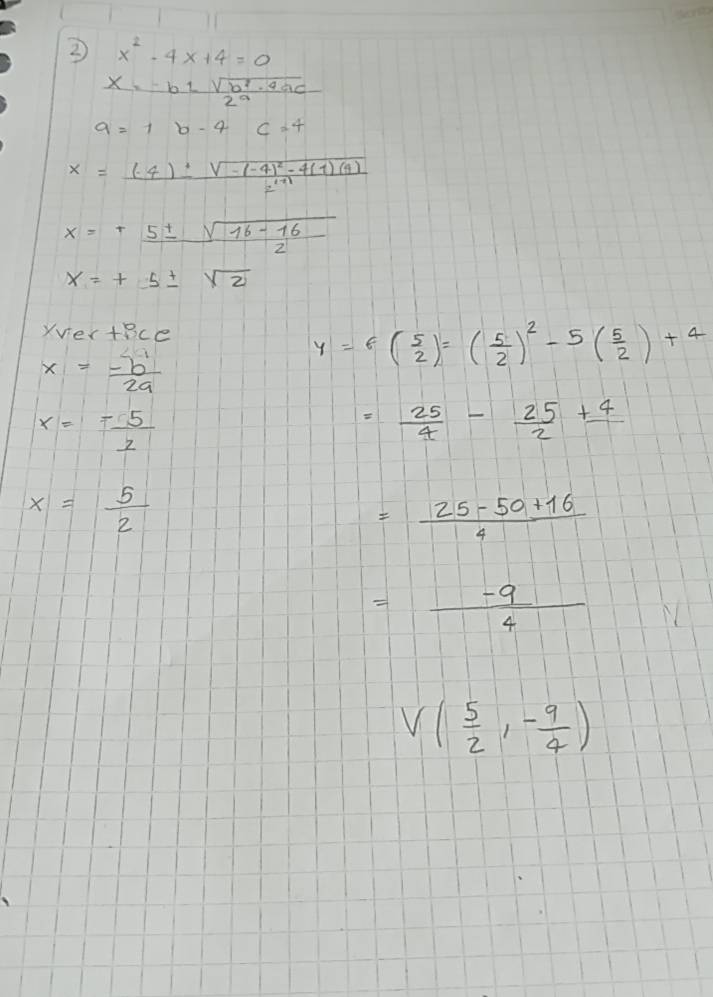 2) x² - 4x + 4 = 0
x = -b ± √b² - 4ac / 2a
a = 1 b - 4 c = 4
x = (-4) ± √-(-4)² - 4(1)(4) / 2(1)
x = + 5 ± √16 - 16 / 2
x = + 5 ± √2
x = -b / 2a
x = -5 / 2
x = 5 / 2
(5/2) = (5/2)² - 5(5/2) + 4
= 25/4 - 25/2 + 4
= 25 - 50 + 16 / 4
= -9 / 4
V(5/2, -9/4)